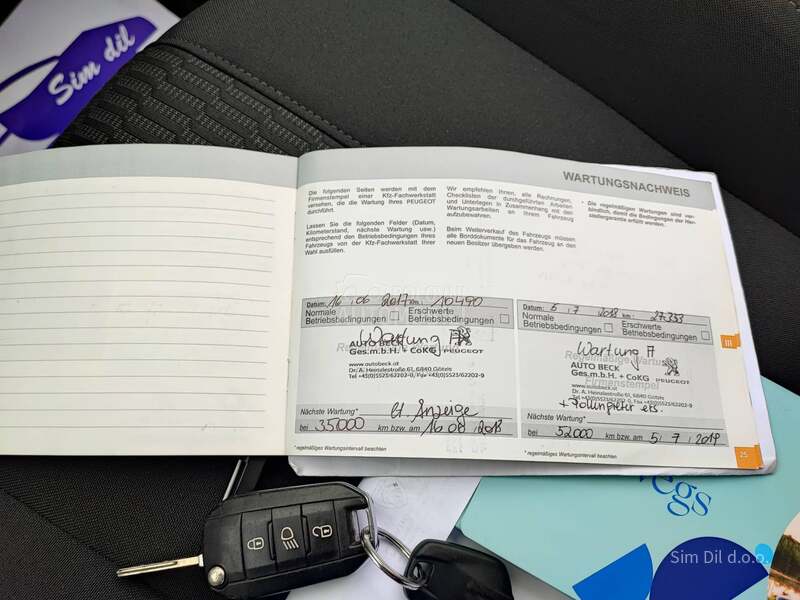 Sim dil
WARTUNGSNACHWEIS
Die folgenden Seiten werden mit dem
Firmenstempel einer Kfz-Fachwerkstatt
versehen, die die Wartung Ihres PEUGEOT
durchführt.
Lassen Sie die folgenden Felder (Datum,
Kilometerstand, nächste Wartung usw.)
entsprechend den Betriebsbedingungen Ihres
Fahrzeugs von der Kfz-Fachwerkstatt Ihrer
Wahl ausfüllen.
Wir empfehlen Ihnen, alle Rechnungen,
Checklisten der durchgeführten Arbeiten
und Unterlagen in Zusammenhang mit den
Wartungsarbeiten an Ihrem Fahrzeug
aufzubewahren.
Beim Weiterverkauf des Fahrzeugs müssen
alle Borddokumente für das Fahrzeug an den
neuen Besitzer übergeben werden.
* Die regelmäßigen Wartungen sind ver-
bindlich, damit die Bedingungen der Her-
stellergarantie erfüllt werden.
Datum: 16 . 06 2017 km: 10490
Normale Betriebsbedingungen
Erschwerte Betriebsbedingungen
Wartung A
AUTO BECK
Ges.m.b.H. + CoKG PEUGEOT
www.autobeck.at
Dr. A. Heinzlestraße 61, 6840 Götzis
Tel +43(0)5523/62202-0, Fax +43(0)5523/62202-9
Nächste Wartung* lt. Anzeige
bei 35000 km bzw. am 16 06 2018
* regelmäßiges Wartungsintervall beachten
Datum: 5 . 7 2018 km: 27333
Normale Betriebsbedingungen
Erschwerte Betriebsbedingungen
Regelmäßige Wartung
Wartung A
AUTO BECK
Ges.m.b.H. + CoKG PEUGEOT
Firmenstempel
www.autobeck.at
Dr. A. Heinzlestraße 61, 6840 Götzis
Tel +43(0)5523/62202-0, Fax +43(0)5523/62202-9
+ Pollenfilter ers.
Nächste Wartung*
bei 52000 km bzw. am 5 . 7 . 2019
* regelmäßiges Wartungsintervall beachten
III
25
egs
Sim Dil d.o.o.